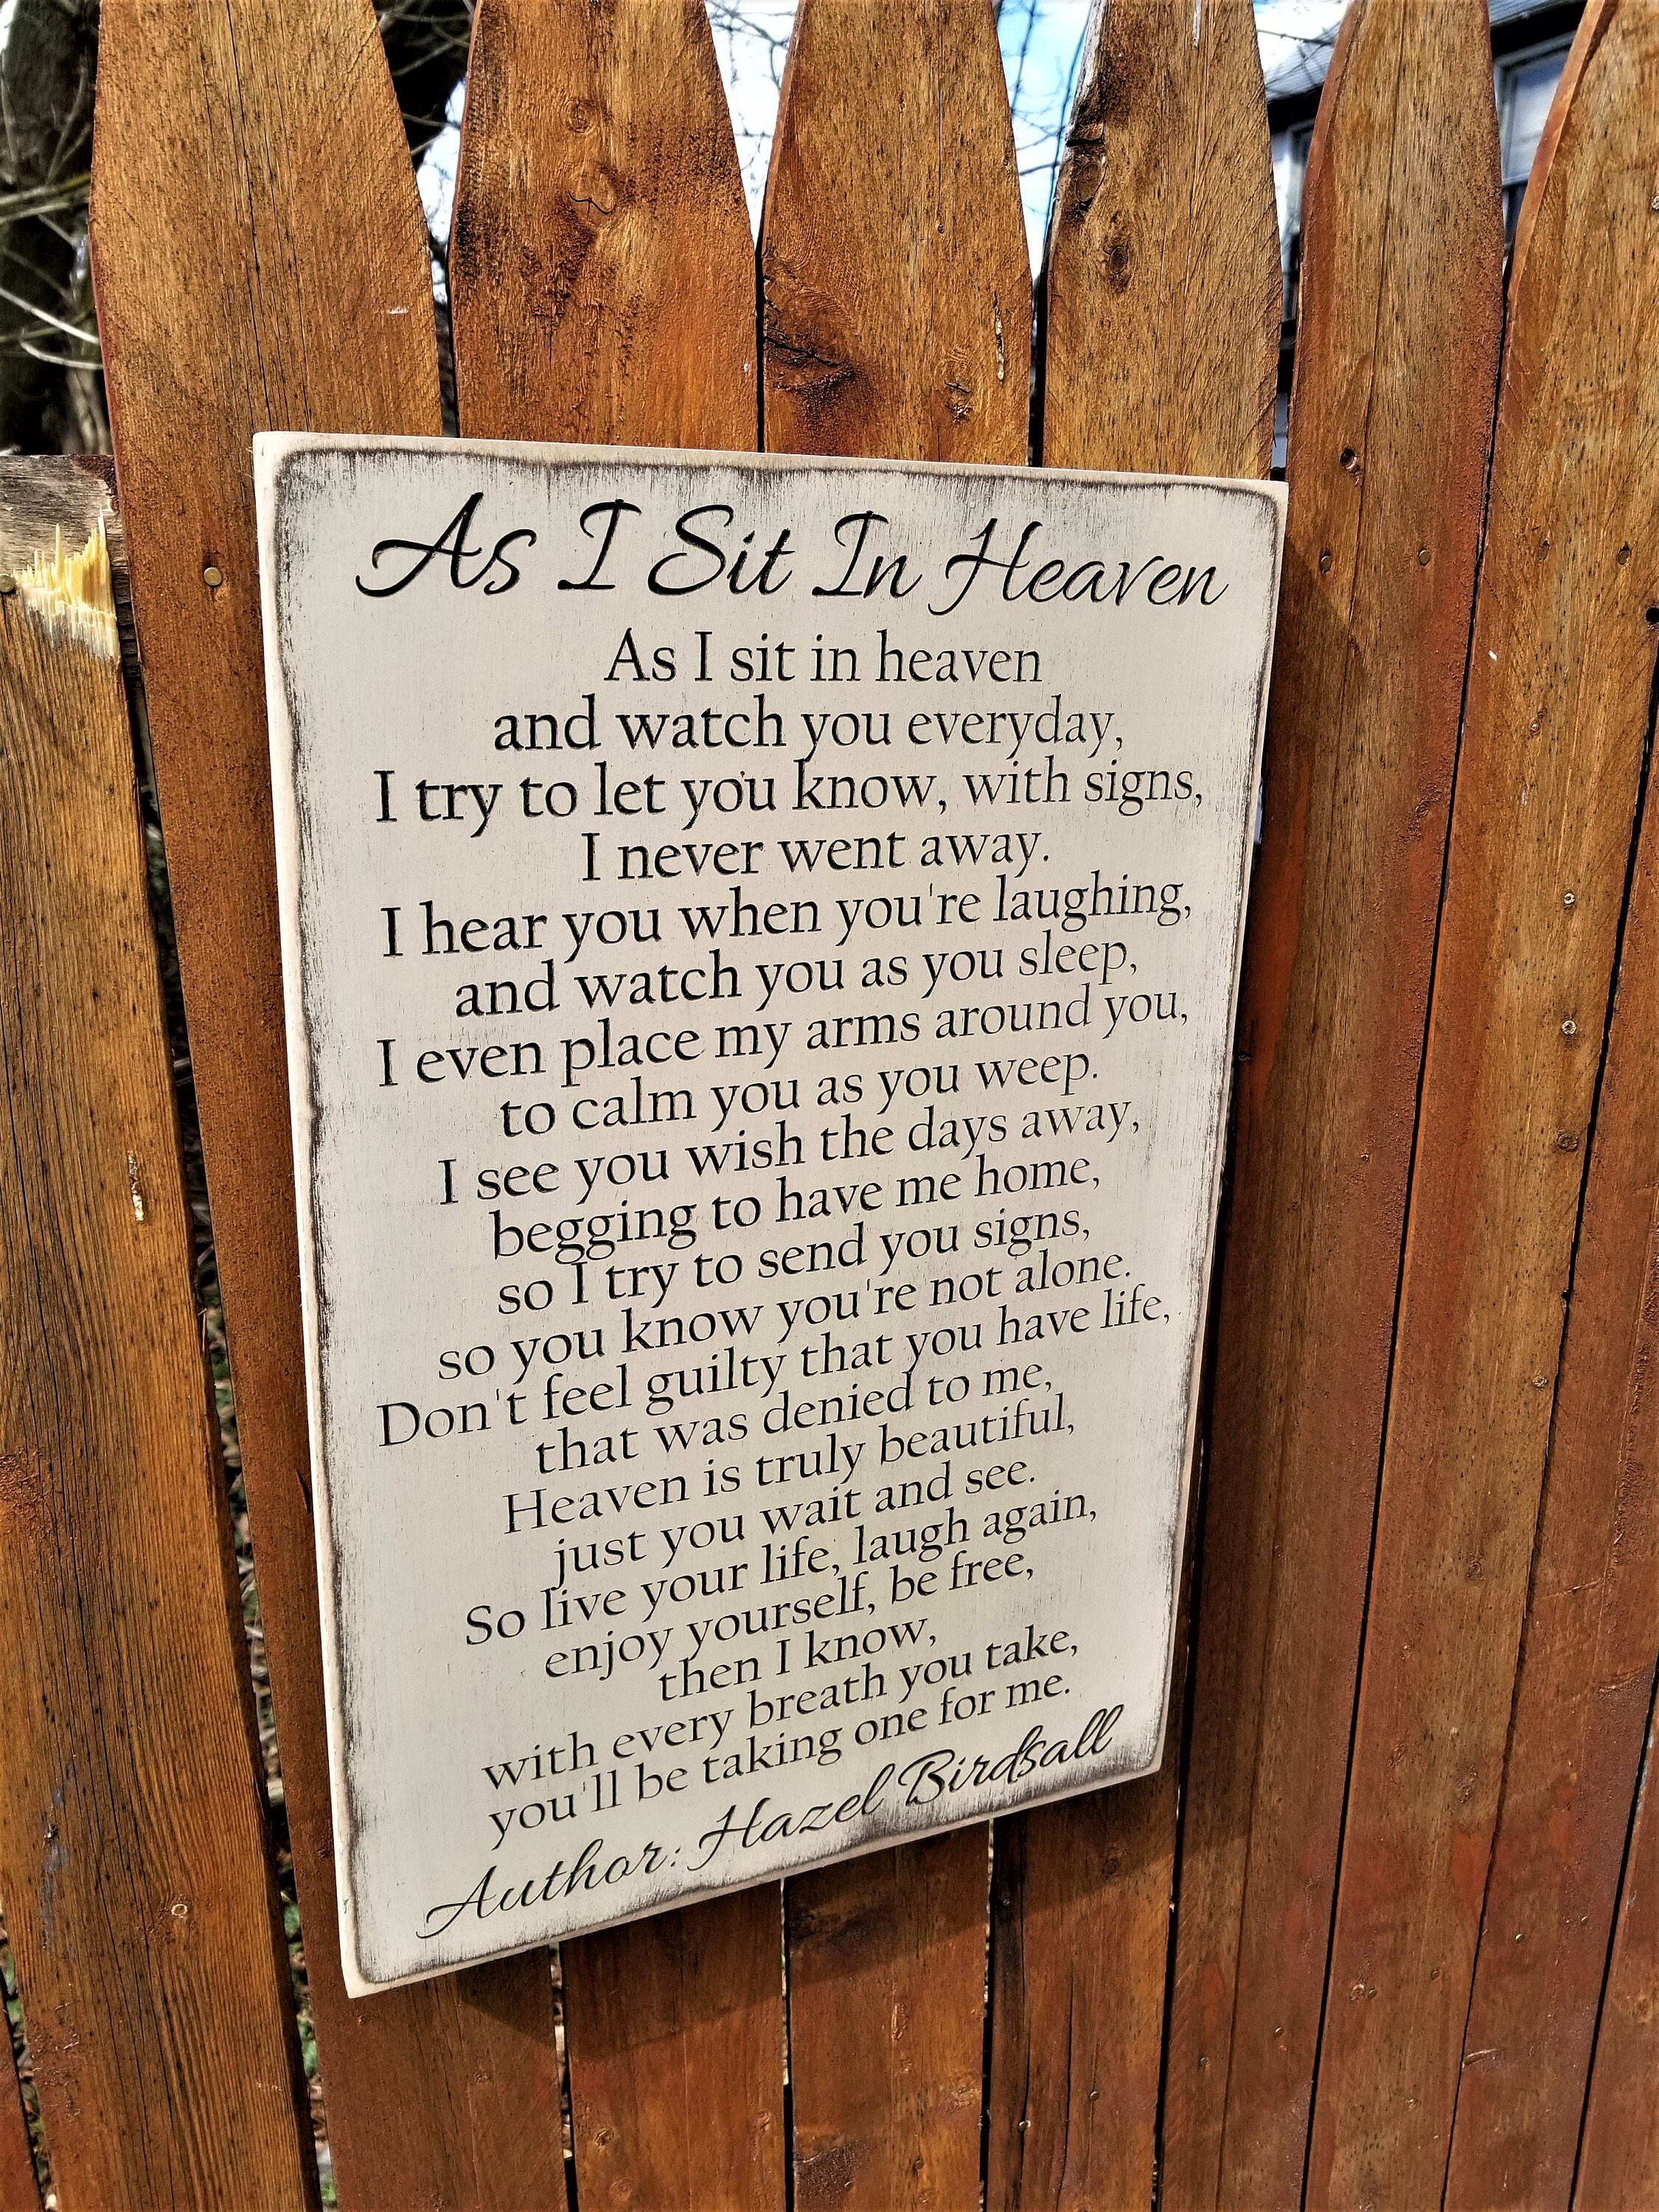 As I Sit In Heaven
As I sit in heaven
and watch you everyday,
I try to let you know, with signs,
I never went away.
I hear you when you're laughing,
and watch you as you sleep,
I even place my arms around you,
to calm you as you weep.
I see you wish the days away,
begging to have me home,
so I try to send you signs,
so you know you're not alone.
Don't feel guilty that you have life,
that was denied to me,
Heaven is truly beautiful,
just you wait and see.
So live your life, laugh again,
enjoy yourself, be free,
then I know,
with every breath you take,
you'll be taking one for me.
Author: Hazel Birdsall